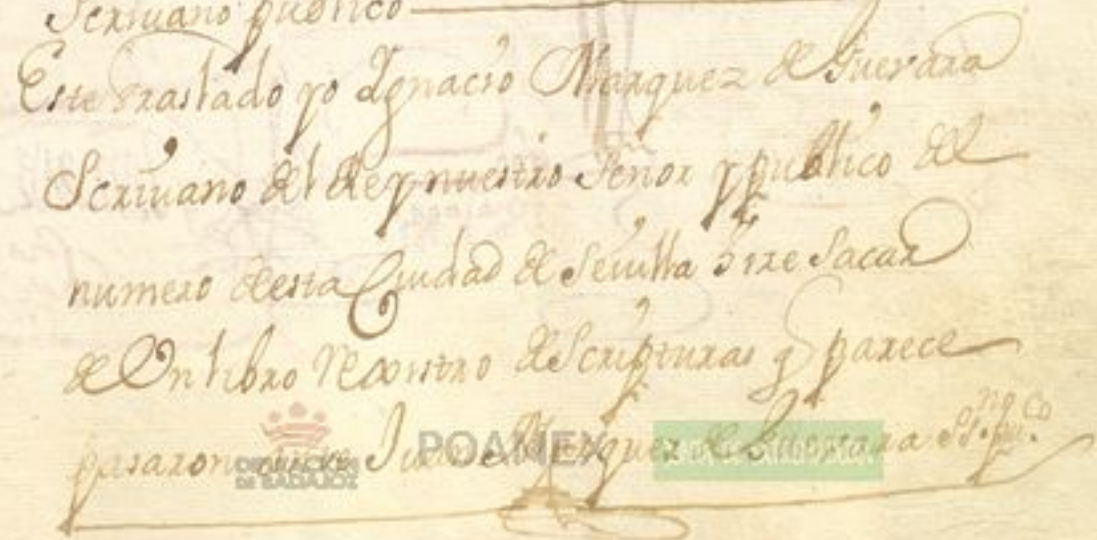 Scriuano publico
Este traslado yo Ygnacio Marquez de Gueuara
Scriuano del Rey nuestro Señor y publico del
numero desta Ciudad de Seuilla hize Sacar
de Vn libro Rexistro de Scripturas q parece
pasaron ante Juan Marquez de Gueuara ss.no pu.co
DIPUTACIÓN DE BADAJOZ
POAMEX